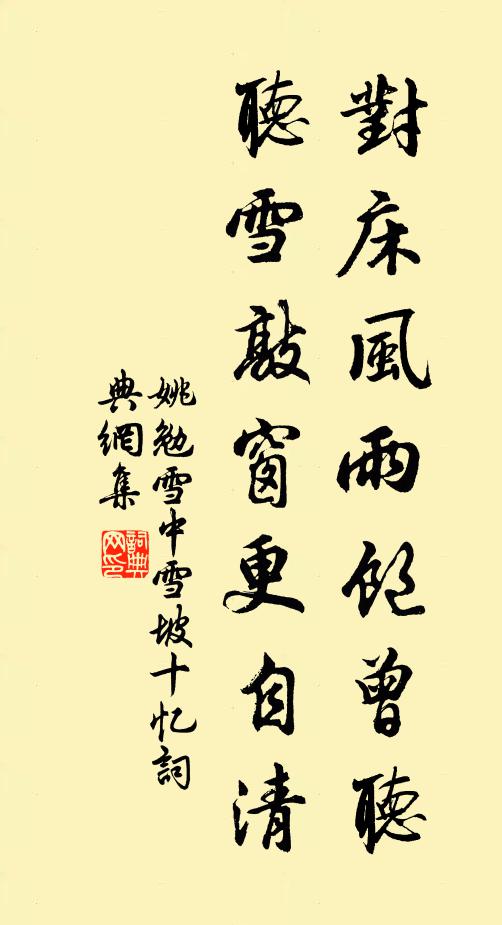 對床風雨飽曾聽
聽雪敲窗更自清
姚勉雪中雪坡十忆詞
典網集
詞典
网印